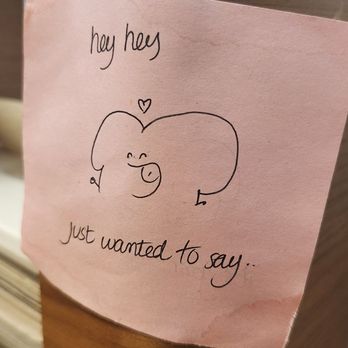 hey hey
just wanted to say..